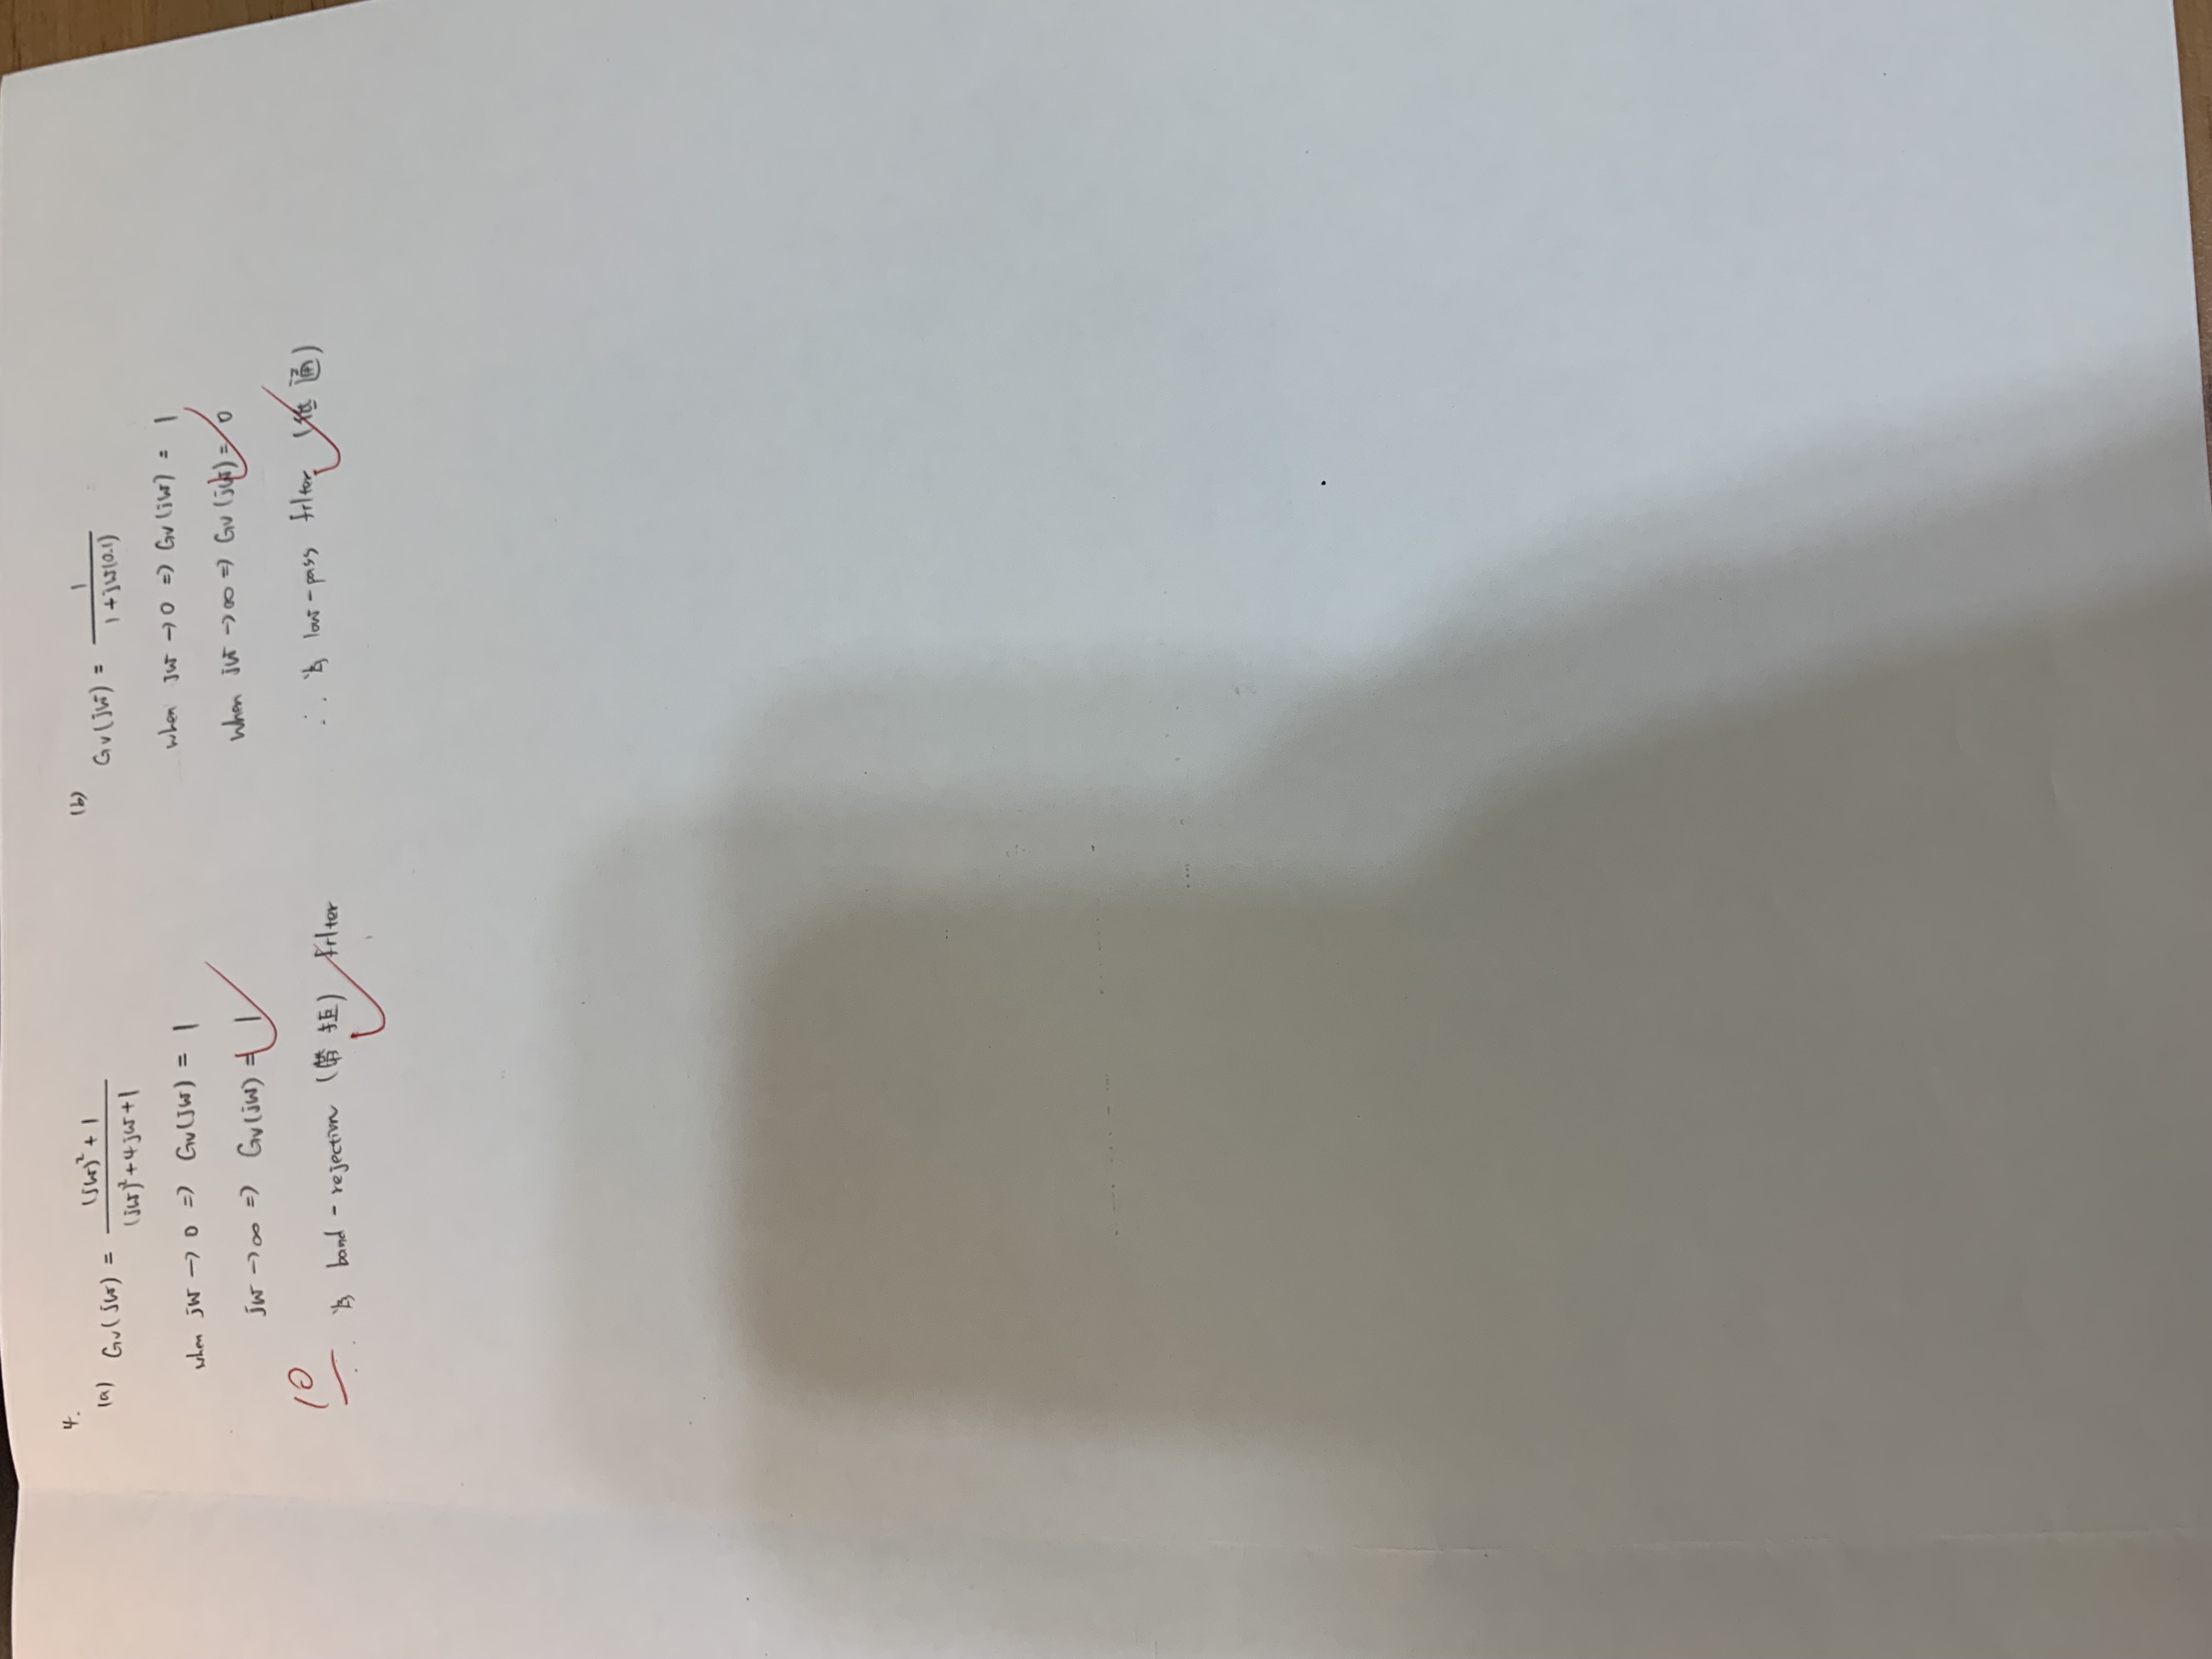 4.
(a) Gv(jω) = ((jω)² + 1) / ((jω)² + 4jω + 1)
when jω → 0 => Gv(jω) = 1
jω → ∞ => Gv(jω) = 1
10
∴ 為 band - rejection (帶拒) filter
(b) Gv(jω) = 1 / (1 + jω(0.1))
when jω → 0 => Gv(jω) = 1
when jω → ∞ => Gv(jω) = 0
∴ 為 low - pass filter (低通)